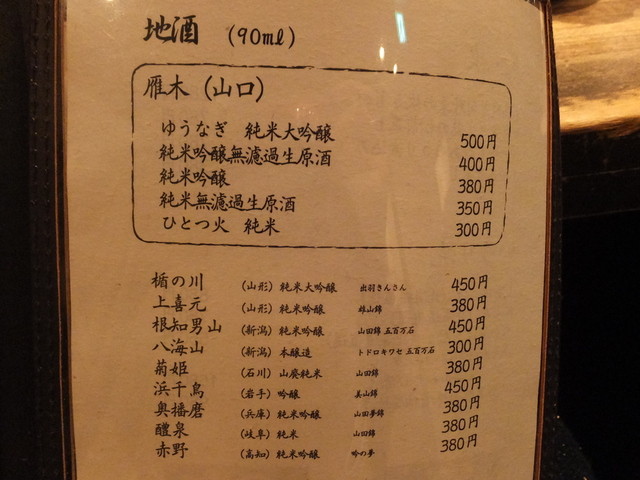 地酒 (90ml)
雁木 (山口)
ゆうなぎ 純米大吟醸 500円
純米吟醸無濾過生原酒 400円
純米吟醸 380円
純米無濾過生原酒 350円
ひとつ火 純米 300円
楯の川 (山形) 純米大吟醸 出羽さんさん 450円
上喜元 (山形) 純米吟醸 雄山錦 380円
根知男山 (新潟) 純米吟醸 山田錦 五百万石 450円
八海山 (新潟) 本醸造 トドロキワセ 五百万石 300円
菊姫 (石川) 山廃純米 山田錦 380円
浜千鳥 (岩手) 吟醸 美山錦 450円
奥播磨 (兵庫) 純米吟醸 山田夢錦 380円
醴泉 (岐阜) 純米 山田錦 380円
赤野 (高知) 純米吟醸 吟の夢 380円